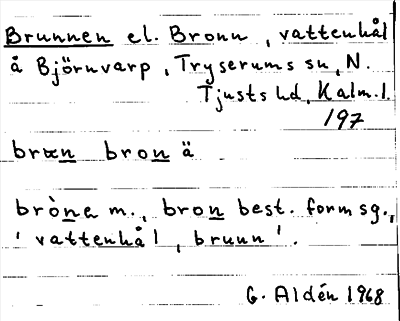 Brunnen el. Bronn, vattenhål
å Björnvarp, Tryserums sn, N.
Tjusts hd, Kalm.l.
197
bræn bron ä
bròne m., bron best. form sg.,
' vattenhål, brunn'.
G. Aldén 1968